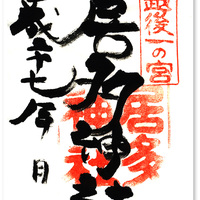 越後一の宮
居多神社
居多神社
平成二十七年 月 日